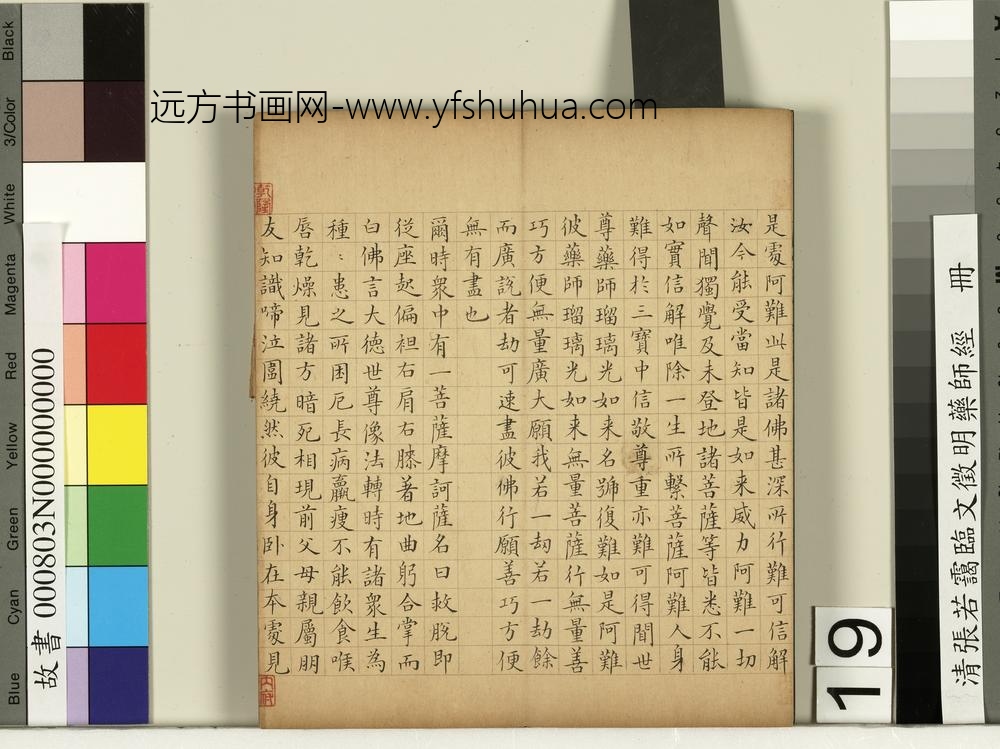 远方书画网-www.yfshuhua.com
是處阿難此是諸佛甚深所行難可信解
汝今能受當知皆是如来威力阿難一切
聲聞獨覺及未登地諸菩薩等皆悉不能
如實信解唯除一生所繫菩薩阿難人身
難得於三寶中信敬尊重亦難可得聞世
尊藥師瑠璃光如来名號復難如是阿難
彼藥師瑠璃光如来無量菩薩行無量善
巧方便無量廣大願我若一劫若一劫餘
而廣說者劫可速盡彼佛行願善巧方便
無有盡也
爾時衆中有一菩薩摩訶薩名曰救脫即
從座起偏袒右肩右膝著地曲躬合掌而
白佛言大德世尊像法轉時有諸衆生為
種〻患之所困厄長病羸瘦不能飲食喉
唇乾燥見諸方暗死相現前父母親屬朋
友知識啼泣圍繞然彼自身卧在本處見
乾隆
清張若靄臨文徵明藥師經 冊
19
故書 000803N000000000
Blue
Cyan
Green
Yellow
Red
Magenta
White
3/Color
Black